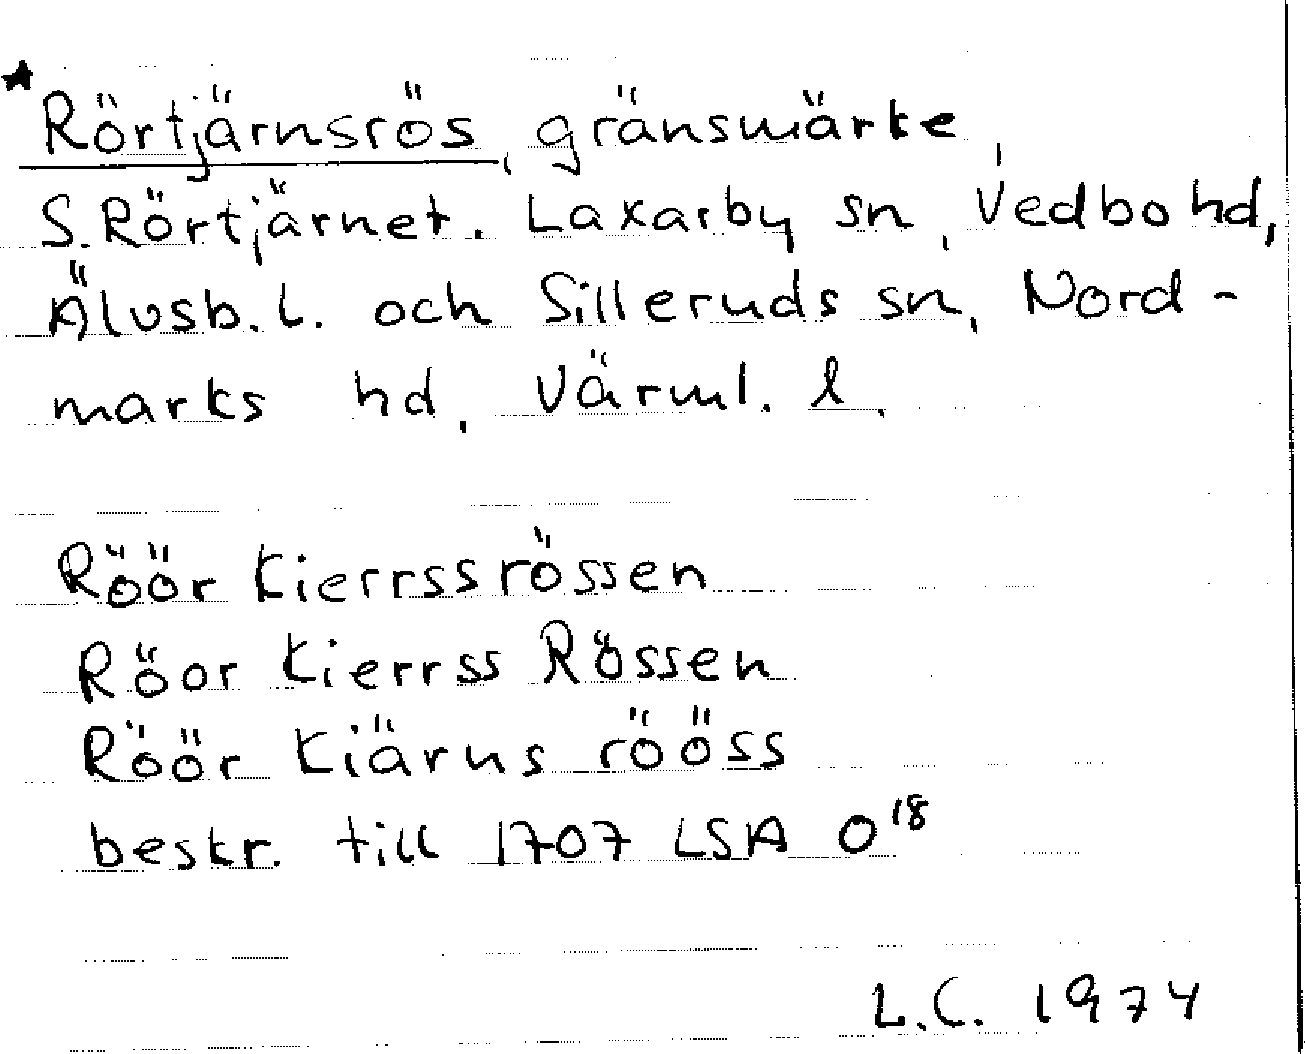 *Rörtjärnsrös, gränsmärke,
S. Rörtjärnet. Laxarby sn, Vedbo hd,
Älvsb. l. och Silleruds sn, Nord-
marks hd, Värml. l.
Röör kierrssrössen
Röor kierrss Rössen
Röör kiärns rööss
beskr. till 1707 LSA O¹⁸
L.C. 1974